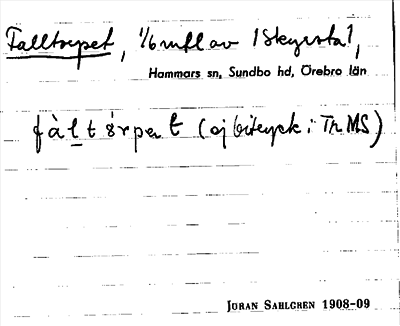 Falltorpet, 1/6 mtl av 1 Skyrsta1,
Hammars sn, Sundbo hd, Örebro län
fàltórpet (ej bitryck i ThMS)
JÖRAN SAHLGREN 1908-09